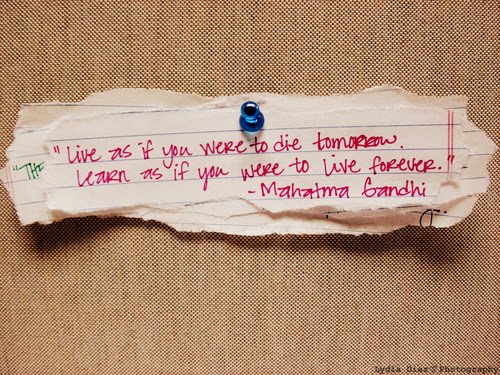 "THE
"Live as if you were to die tomorrow.
Learn as if you were to live forever."
- Mahatma Gandhi
Lydia Diaz Photography